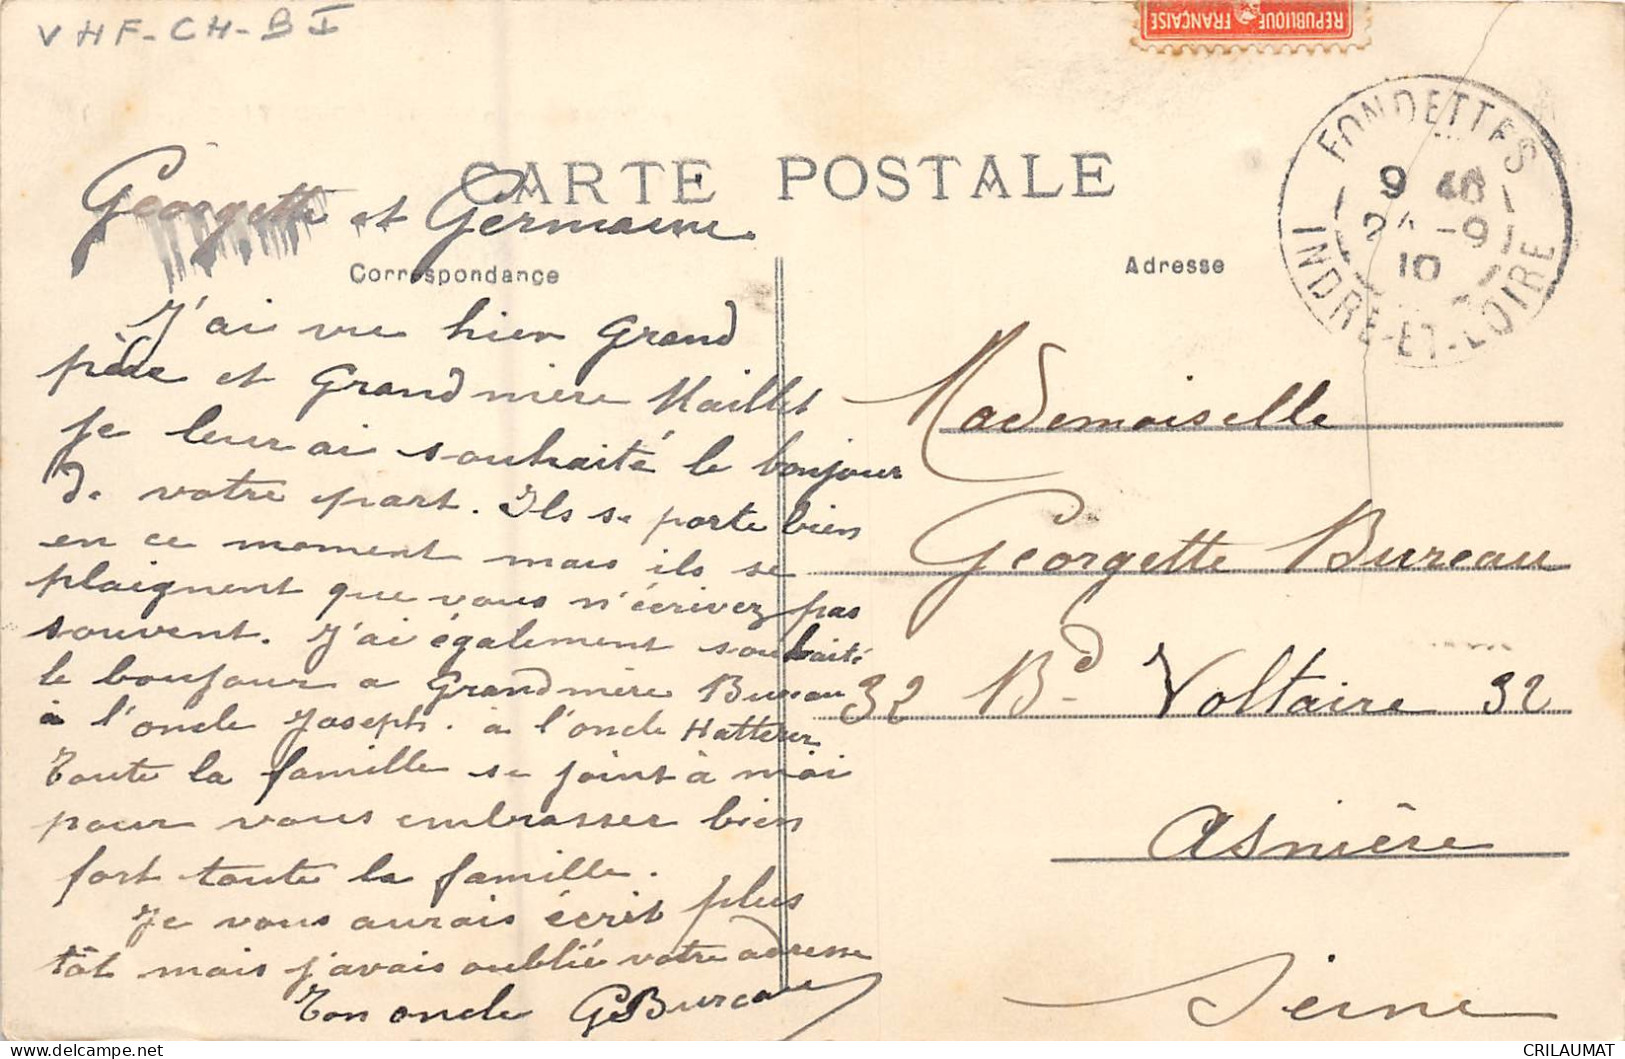 VHF-CH-BI
RÉPUBLIQUE FRANÇAISE
CARTE POSTALE
Correspondance
Adresse
FONDETTES
9 46
24 -9
10
INDRE-ET-LOIRE
Georgette et Germaine
J'ai vu hier Grand
père et Grandmère Maillet
je leur ai souhaité le bonjour
de votre part. Ils se porte bien
en ce moment mais ils se
plaignent que vous n'écrivez pas
souvent. J'ai également souhaité
le bonjour a Grandmère Bureau
à l'oncle Joseph. à l'oncle Hatterer
Toute la famille se joint à moi
pour vous embrasser bien
fort toute la famille.
Je vous aurais écrit plus
tôt mais j'avais oublié votre adresse
Ton oncle G Bureau
Mademoiselle
Georgette Bureau
32 Bd Voltaire 32
Asnière
Seine
CRILAUMAT